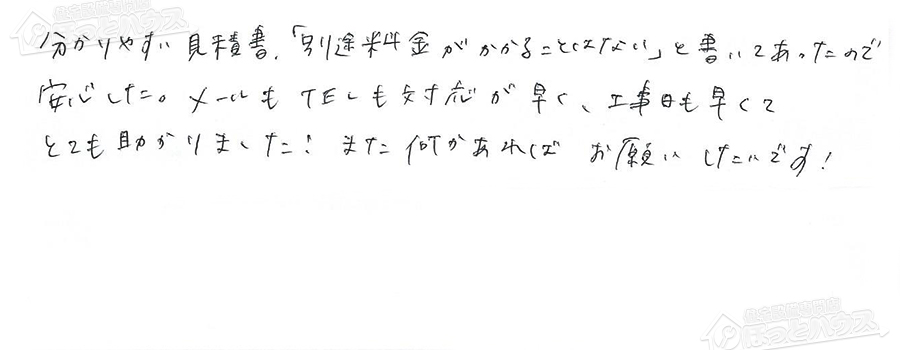 分かりやすい見積書、「別途料金がかかることはない」と書いてあったので
安心した。メールもTELも対応が早く、工事日も早くて
とても助かりました！また何かあれば お願いしたいです！
住宅設備専門店
ほっとハウス